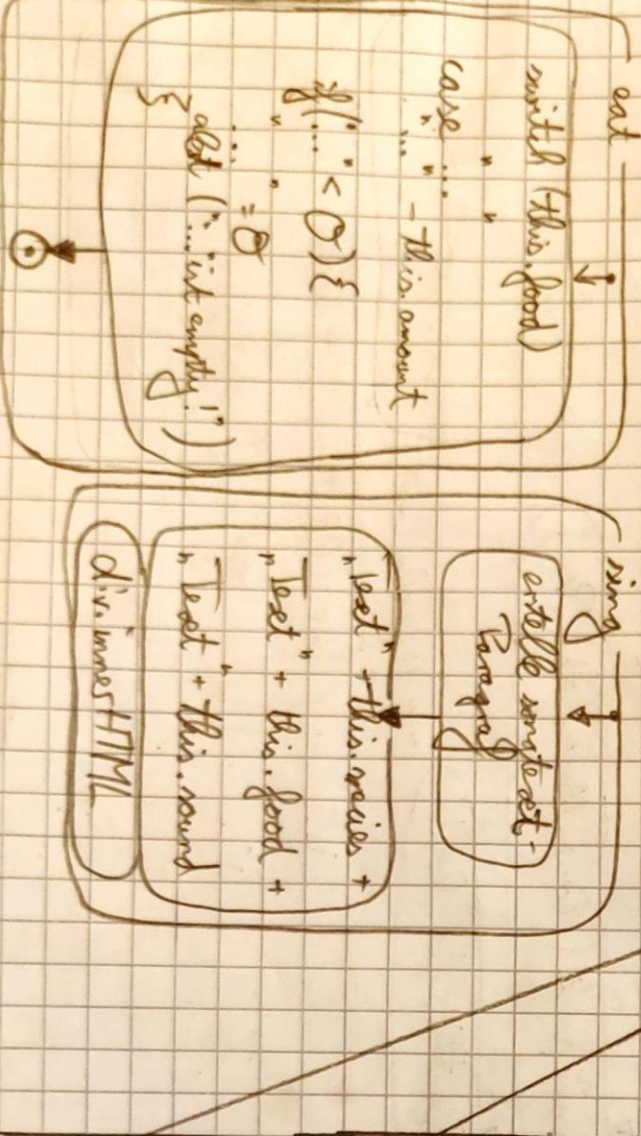 eat
switch (this.food)
" "
case ...
"..." - this.amount
if ("..." < 0) {
" "
... = 0
alert ("..." ist empty!")
}
sing
erstelle songtext-
Paragraf
"Text" + this.species +
"Text" + this.food +
"Text" + this.sound
div.innerHTML